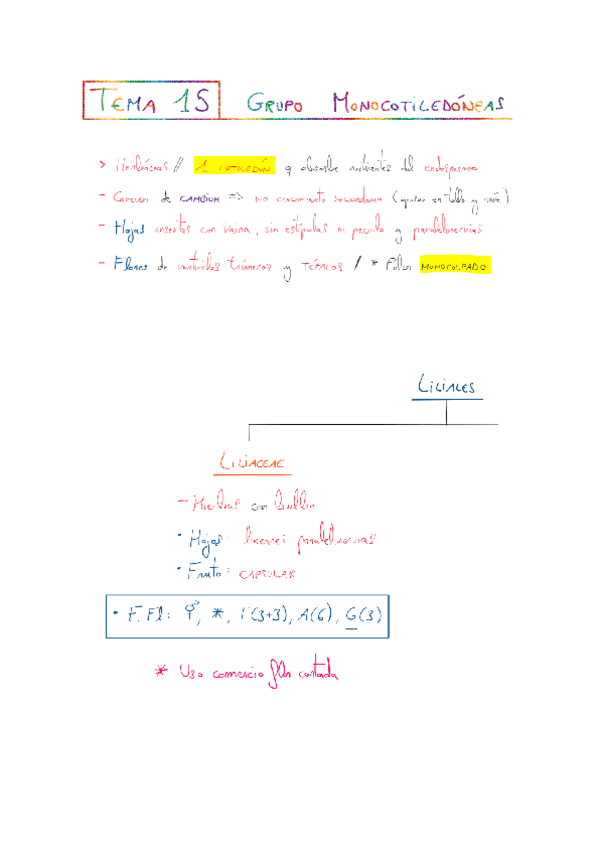 TEMA 15 GRUPO MONOCOTILEDÓNEAS
> Herbáceas // 1 COTILEDÓN q absorbe nutrientes del endosperma
- Carecen de CAMBIUM => no crecimiento secundario (grosor en tallo y raíz)
- Hojas insertas con vaina, sin estípulas ni peciolo y paralelinervias
- Flores de verticilos trímeros y TÉPALOS / * Polen MONOCOLPADO
LILIALES
LILIACEAE
- Hierbas con Bulbo
· Hojas: lineares paralelinervias
· Fruto: CAPSULAR
· F.Fl: ⚥, *, P(3+3), A(6), G(3)
* Uso comercio flor cortada